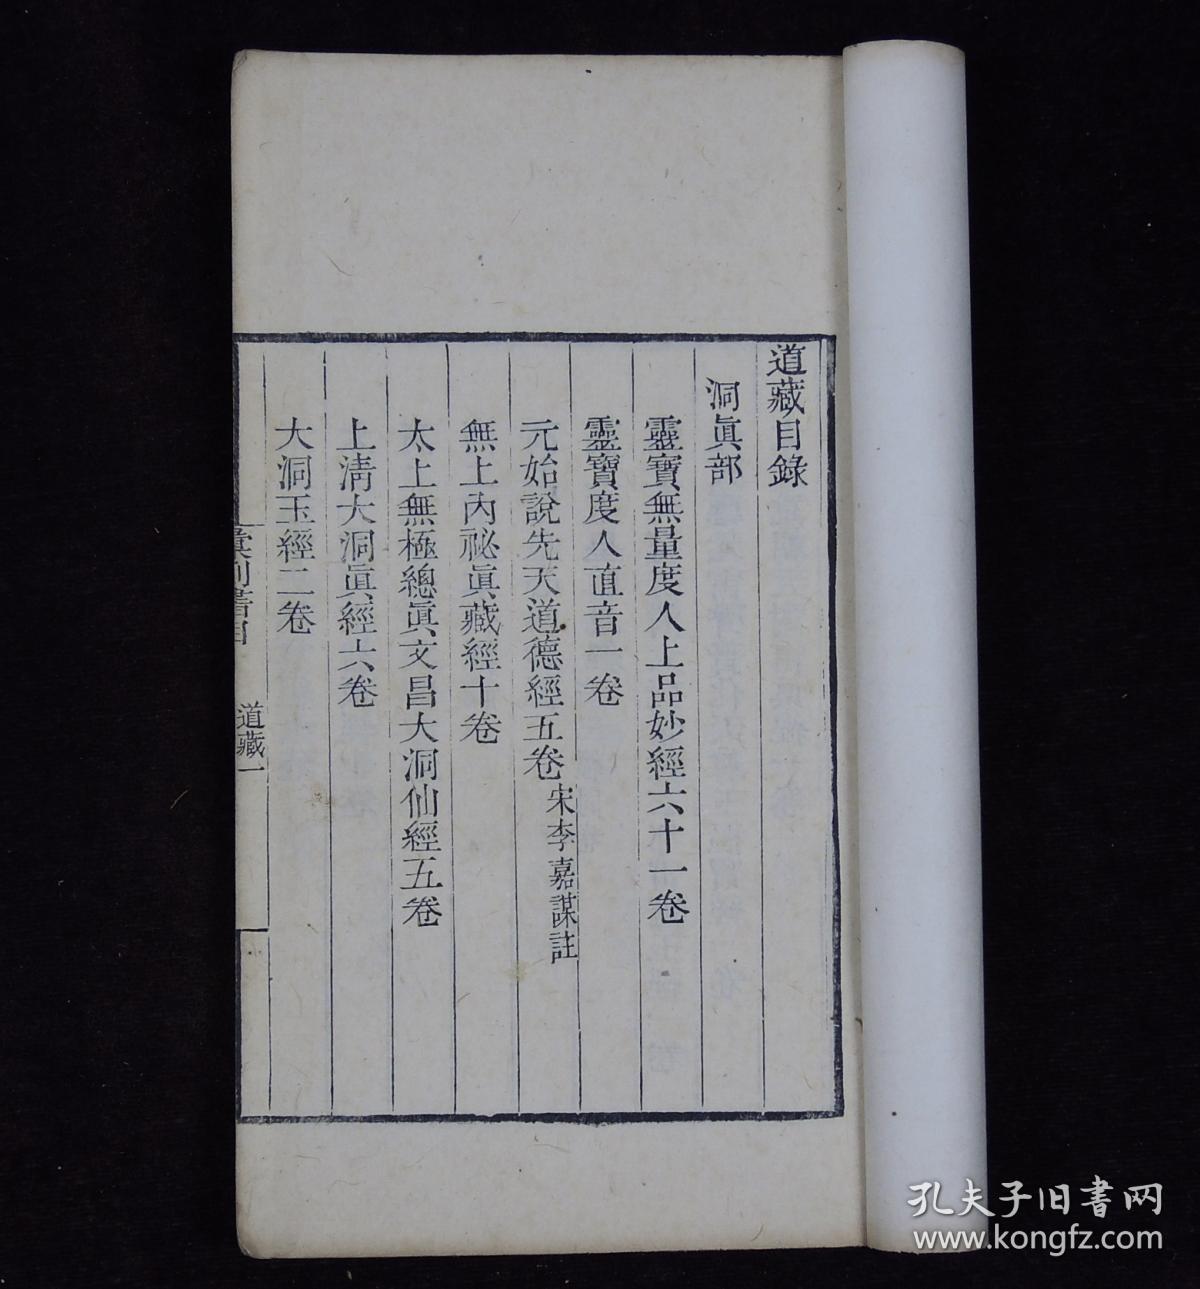 道藏目錄
洞眞部
靈寶無量度人上品妙經六十一卷
靈寶度人直音一卷
元始說先天道德經五卷宋李嘉謀註
無上內祕眞藏經十卷
太上無極總眞文昌大洞仙經五卷
上清大洞眞經六卷
大洞玉經二卷
彙刻書目
道藏一
孔夫子旧书网
www.kongfz.com